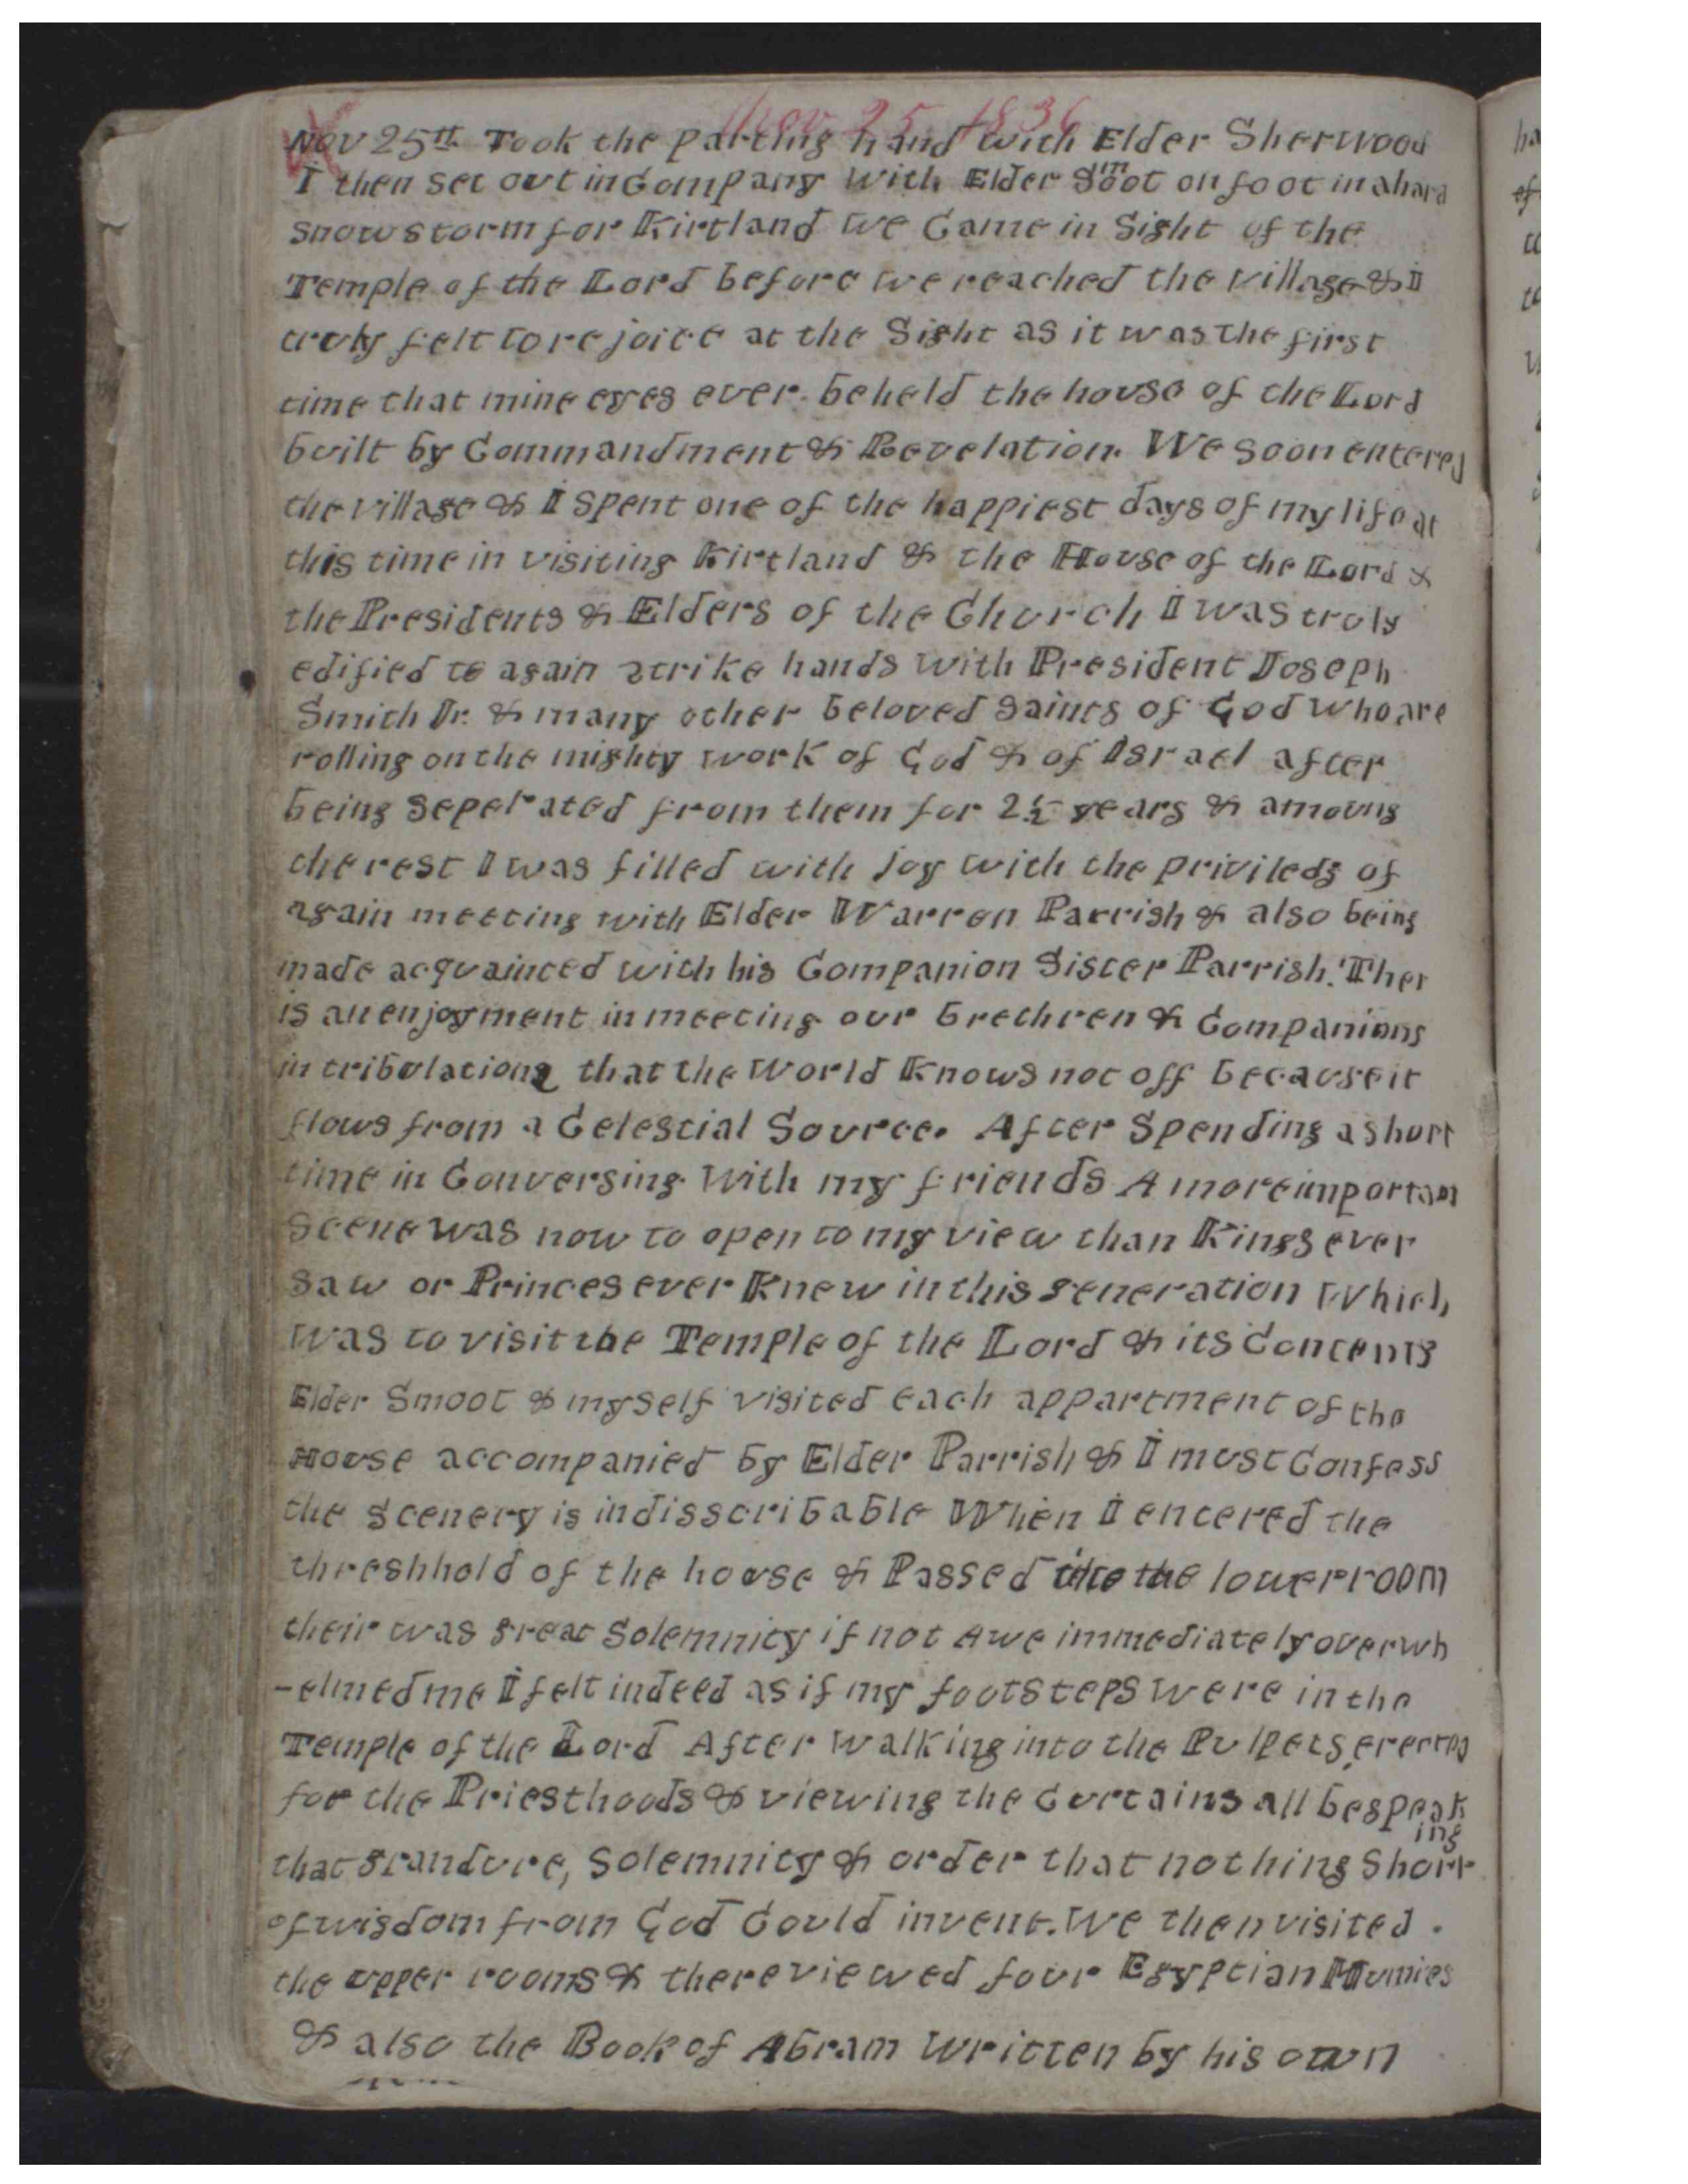 Nov 25 1836
Nov 25th Took the parting hand with Elder Sherwood
I then set out in Company with Elder Smoot on foot in a hard
snow storm for Kirtland We Came in Sight of the
Temple of the Lord before we reached the village & I
truly felt to rejoice at the Sight as it was the first
time that mine eyes ever beheld the house of the Lord
built by Commandment & Revelation. We soon entered
the village & I spent one of the happiest days of my life at
this time in visiting Kirtland & the House of the Lord &
the Presidents & Elders of the Church I was truly
edified to again strike hands with President Joseph
Smith Jr. & many other beloved saints of God who are
rolling on the mighty work of God & of Israel after
being seperated from them for 2½ years & amoung
the rest I was filled with joy with the priviledg of
again meeting with Elder Warren Parrish & also being
made acquainted with his Companion Sister Parrish. Ther
is an enjoyment in meeting our brethren & Companions
in tribulations that the World Knows not off because it
flows from a Celestial Source. After Spending a short
time in Conversing With my friends A more importan
scene was now to open to my view than Kings ever
saw or Princes ever Knew in this generation Which
was to visit the Temple of the Lord & its Contents
Elder Smoot & myself visited each appartment of the
House accompanied by Elder Parrish & I must Confess
the scenery is indisscribable When I entered the
threshhold of the house & Passed into the lower room
their was great Solemnity if not Awe immediately overwh
-elmed me I felt indeed as if my footsteps were in the
Temple of the Lord After walking into the Pulpets, erected
for the Priesthoods & viewing the Curtains all bespeak
ing
that grandure, solemnity & order that nothing Short
of wisdom from God Could invent. We then visited.
the upper rooms & there viewed four Egyptian Mumies
& also the Book of Abram Written by his own